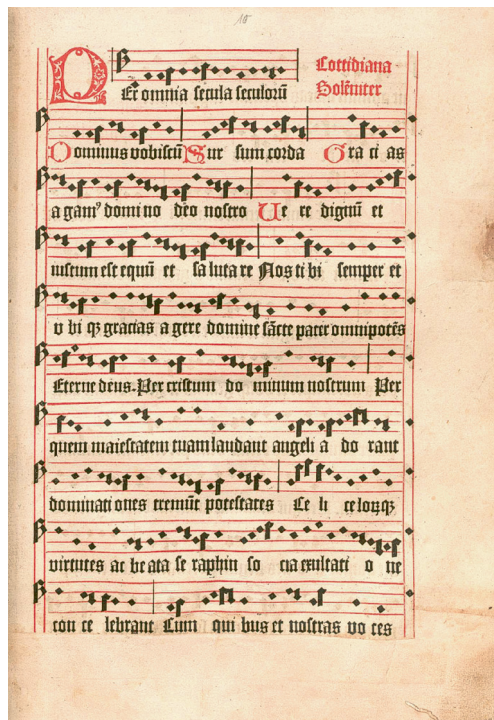 10
Cottidiana
Per omnia secula seculorū
Solēniter
Dominus vobiscū Sur sum corda Gra ti as
a gam⁹ domi no deo nostro Ue re dignū et
iustum est equū et sa luta re Nos ti bi semper et
v bi qꝫ gracias a gere domine sācte pater omnipotēs
Eterne deus. Per cristum do minum nostrum Per
quem maiestatem tuam laudant angeli a do rant
dominati ones tremūt potestates Ce li celorūqꝫ
virtutes ac be ata se raphin so cia exultati o ne
con ce lebrant Cum qui bus et nostras vo ces